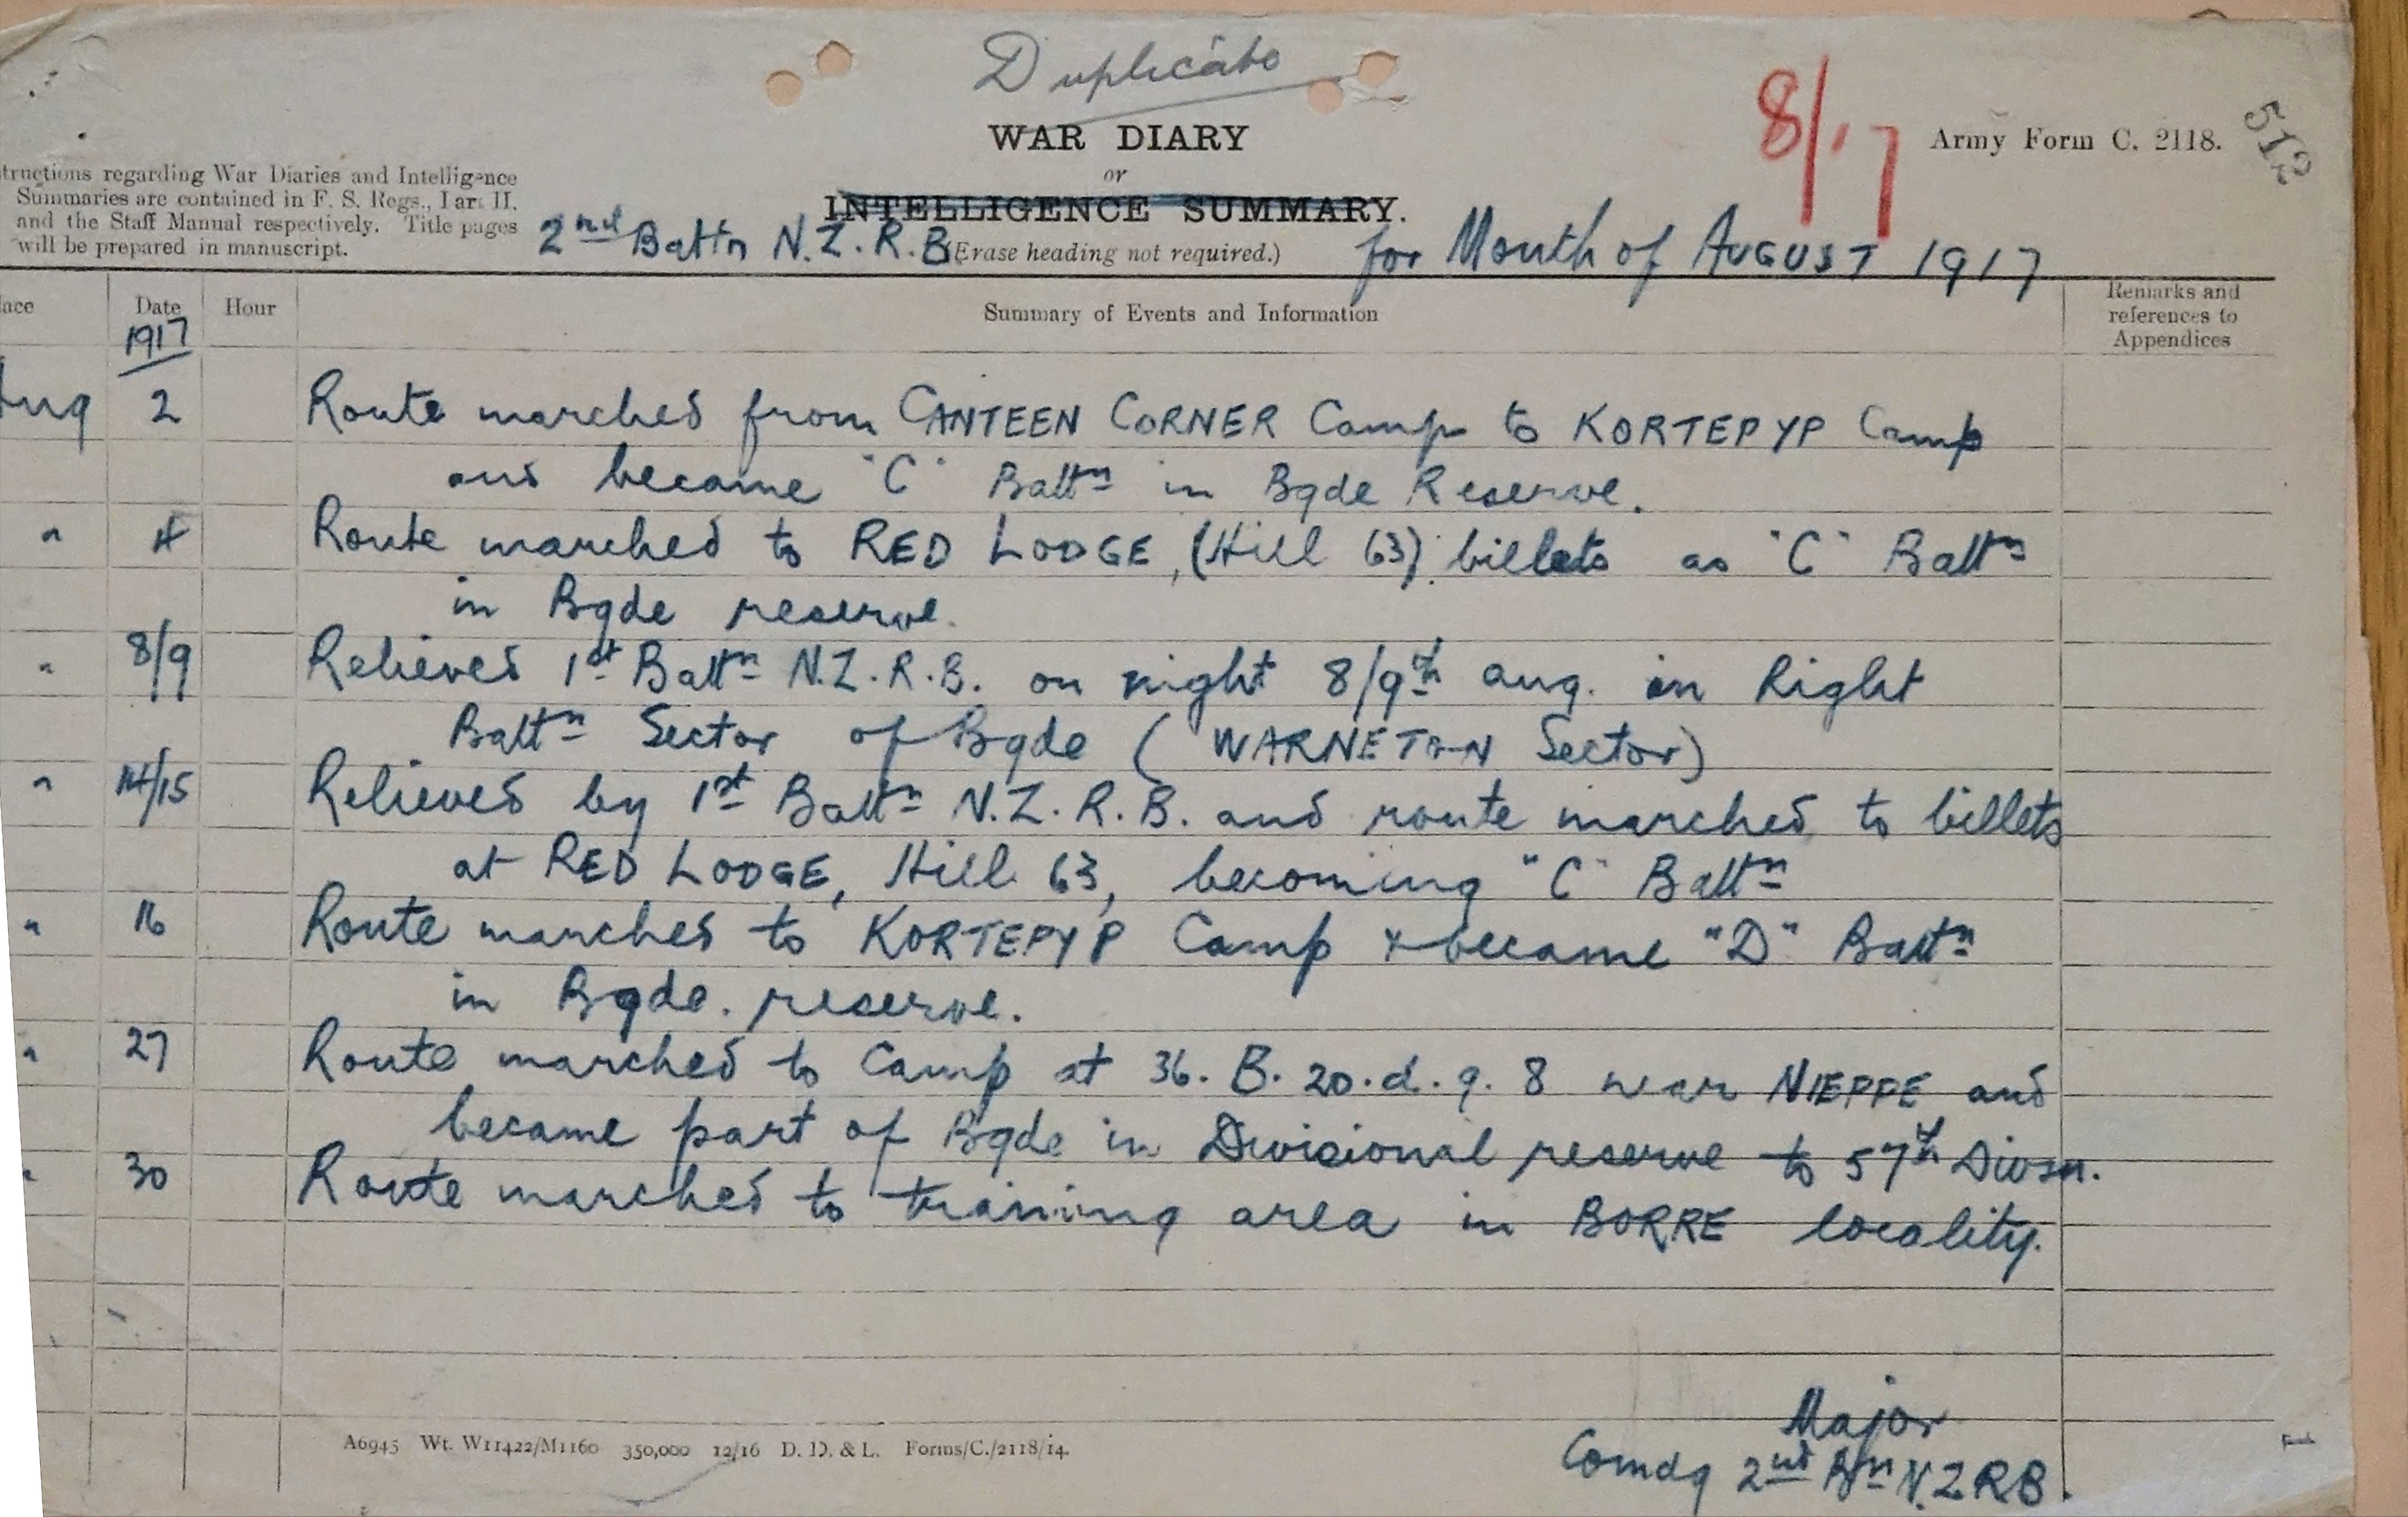 Duplicate
8/17
512
WAR DIARY
Army Form C. 2118.
or
INTELLIGENCE SUMMARY.
tructions regarding War Diaries and Intelligence
Summaries are contained in F. S. Regs., Part II.
and the Staff Manual respectively. Title pages
will be prepared in manuscript.
2nd Battn N.Z.R.B. (Erase heading not required.) for Month of AUGUST 1917
ace Date Hour Summary of Events and Information Remarks and references to Appendices
1917
Aug 2 Route marched from CANTEEN CORNER Camp to KORTEPYP Camp
and became "C" Battn in Bgde Reserve.
" 4 Route marched to RED LODGE, (Hill 63) billets as "C" Battn
in Bgde reserve.
" 8/9 Relieved 1st Battn N.Z.R.B. on night 8/9th Aug. in Right
Battn Sector of Bgde (WARNETON Sector)
" 14/15 Relieved by 1st Battn N.Z.R.B. and route marched to billets
at RED LODGE, Hill 63, becoming "C" Battn
" 16 Route marched to KORTEPYP Camp & became "D" Battn
in Bgde. reserve.
" 27 Route marched to Camp at 36. B. 20. d. 9. 8 near NIEPPE and
became part of Bgde in Divisional reserve to 57th Divsn.
" 30 Route marched to training area in BORRE locality.
Major
Comdg 2nd Bn N.Z.R.B.
A6945 Wt. W11422/M1160 350,000 12/16 D. D. & L. Forms/C./2118/14.